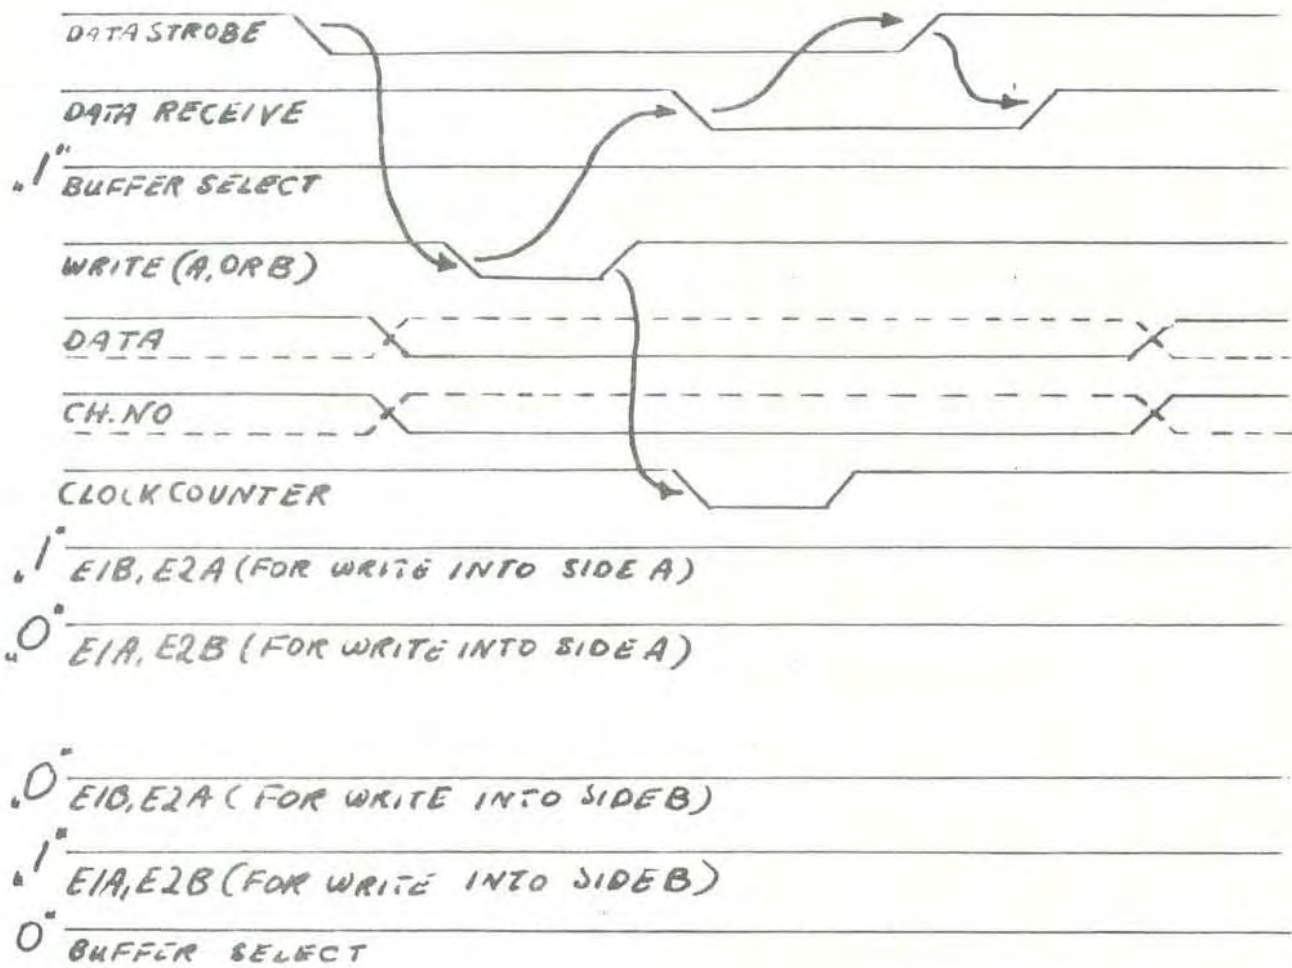 DATA STROBE
DATA RECEIVE
„1"
BUFFER SELECT
WRITE (A, OR B)
DATA
CH. NO
CLOCK COUNTER
„1"
E1B, E2A (FOR WRITE INTO SIDE A)
„0"
E1A, E2B (FOR WRITE INTO SIDE A)
„0"
E1B, E2A (FOR WRITE INTO SIDE B)
„1"
E1A, E2B (FOR WRITE INTO SIDE B)
0"
BUFFER SELECT